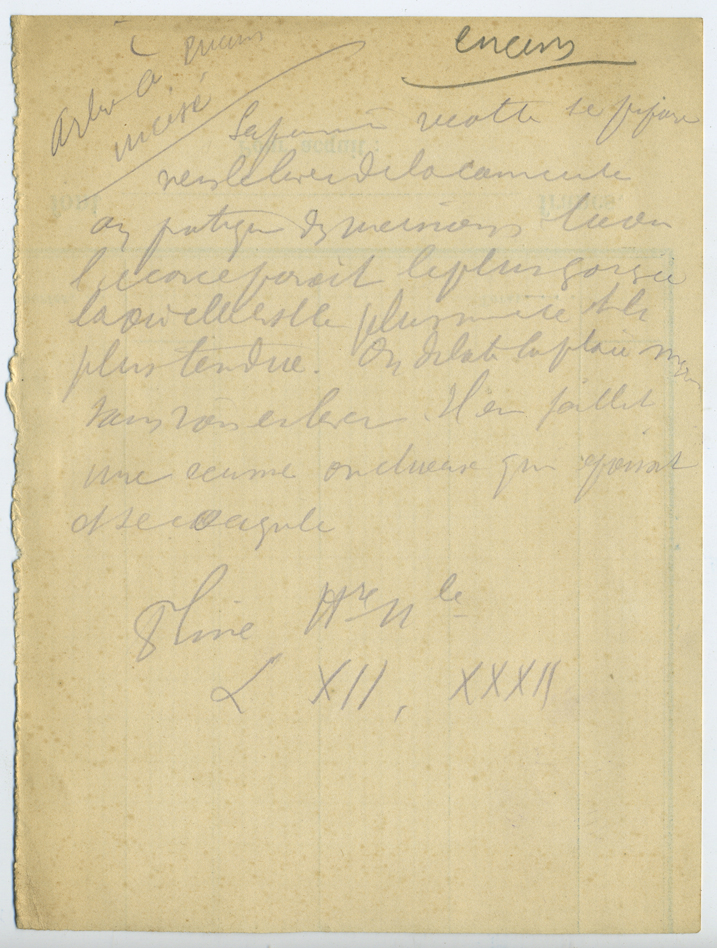 encens
Arbre à encens
incisé
La première récolte se prépare
vers le lever de la canicule
on pratique des incisions là où
l'écorce paraît le plus gorgée
là où elle est le plus mince et le
plus tendue. On dilate la plaie mais
sans rien enlever. Il en jaillit
une écume onctueuse qui épaissit
et se coagule
Pline Hre Nlle
L XII, XXXII